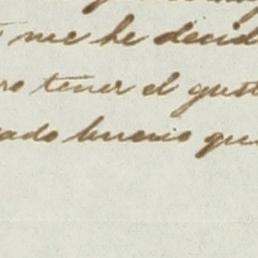 me he decid
ro tener el gust
ado bueno que